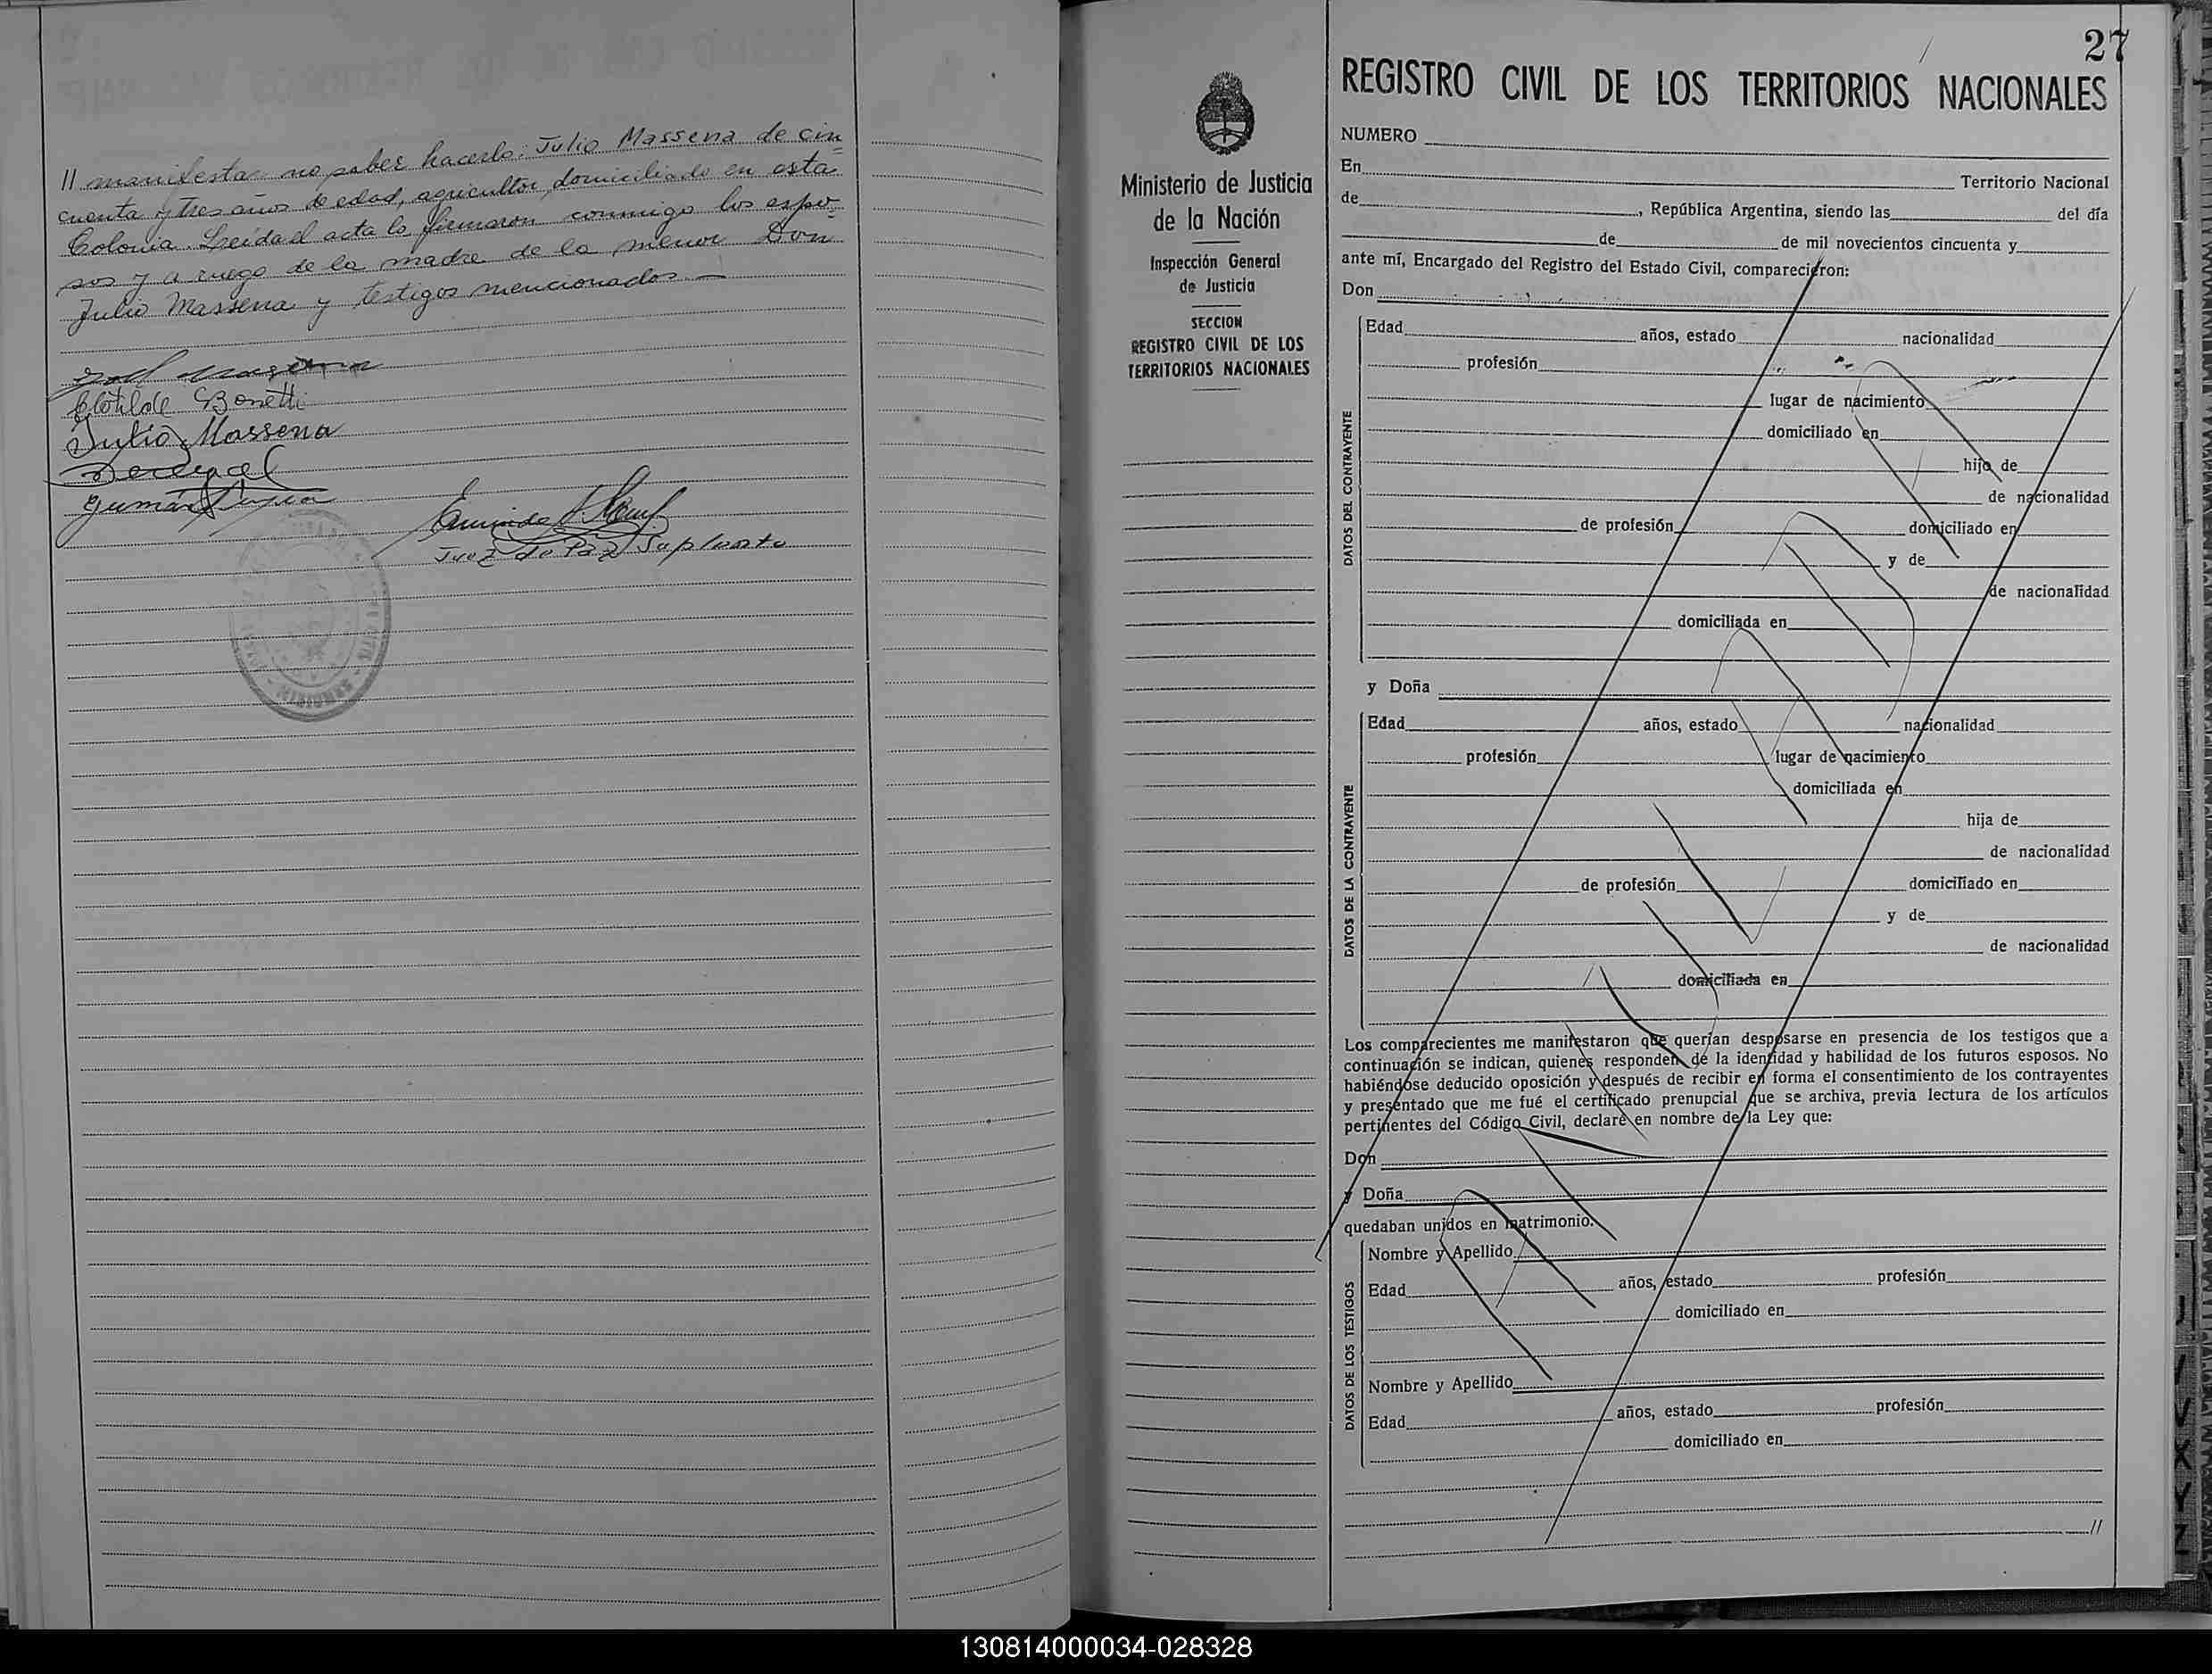 // manifestar no saber hacerlo: Julio Massena de cin=
cuenta y tres años de edad, agricultor, domiciliado en esta
Colonia. Leída el acta la firmaron conmigo los espo-
sos y a ruego de la madre de la menor Don
Julio Massena y testigos mencionados.—
Clotilde Bonetti
Julio Massena
Juez de Paz Suplente
27
REGISTRO CIVIL DE LOS TERRITORIOS NACIONALES
Ministerio de Justicia
de la Nación
Inspección General
de Justicia
SECCION
REGISTRO CIVIL DE LOS
TERRITORIOS NACIONALES
NUMERO
En Territorio Nacional
de , República Argentina, siendo las del día
de de mil novecientos cincuenta y
ante mí, Encargado del Registro del Estado Civil, comparecieron:
Don
DATOS DEL CONTRAYENTE
Edad años, estado nacionalidad
profesión
lugar de nacimiento
domiciliado en
hijo de
de nacionalidad
de profesión domiciliado en
y de
de nacionalidad
domiciliada en
y Doña
DATOS DE LA CONTRAYENTE
Edad años, estado nacionalidad
profesión lugar de nacimiento
domiciliada en
hija de
de nacionalidad
de profesión domiciliado en
y de
de nacionalidad
domiciliada en
Los comparecientes me manifestaron que querían desposarse en presencia de los testigos que a
continuación se indican, quienes responden de la identidad y habilidad de los futuros esposos. No
habiéndose deducido oposición y después de recibir en forma el consentimiento de los contrayentes
y presentado que me fué el certificado prenupcial que se archiva, previa lectura de los artículos
pertinentes del Código Civil, declaré en nombre de la Ley que:
Don
y Doña
quedaban unidos en matrimonio.
DATOS DE LOS TESTIGOS
Nombre y Apellido
Edad años, estado profesión
domiciliado en
Nombre y Apellido
Edad años, estado profesión
domiciliado en
//
130814000034-028328